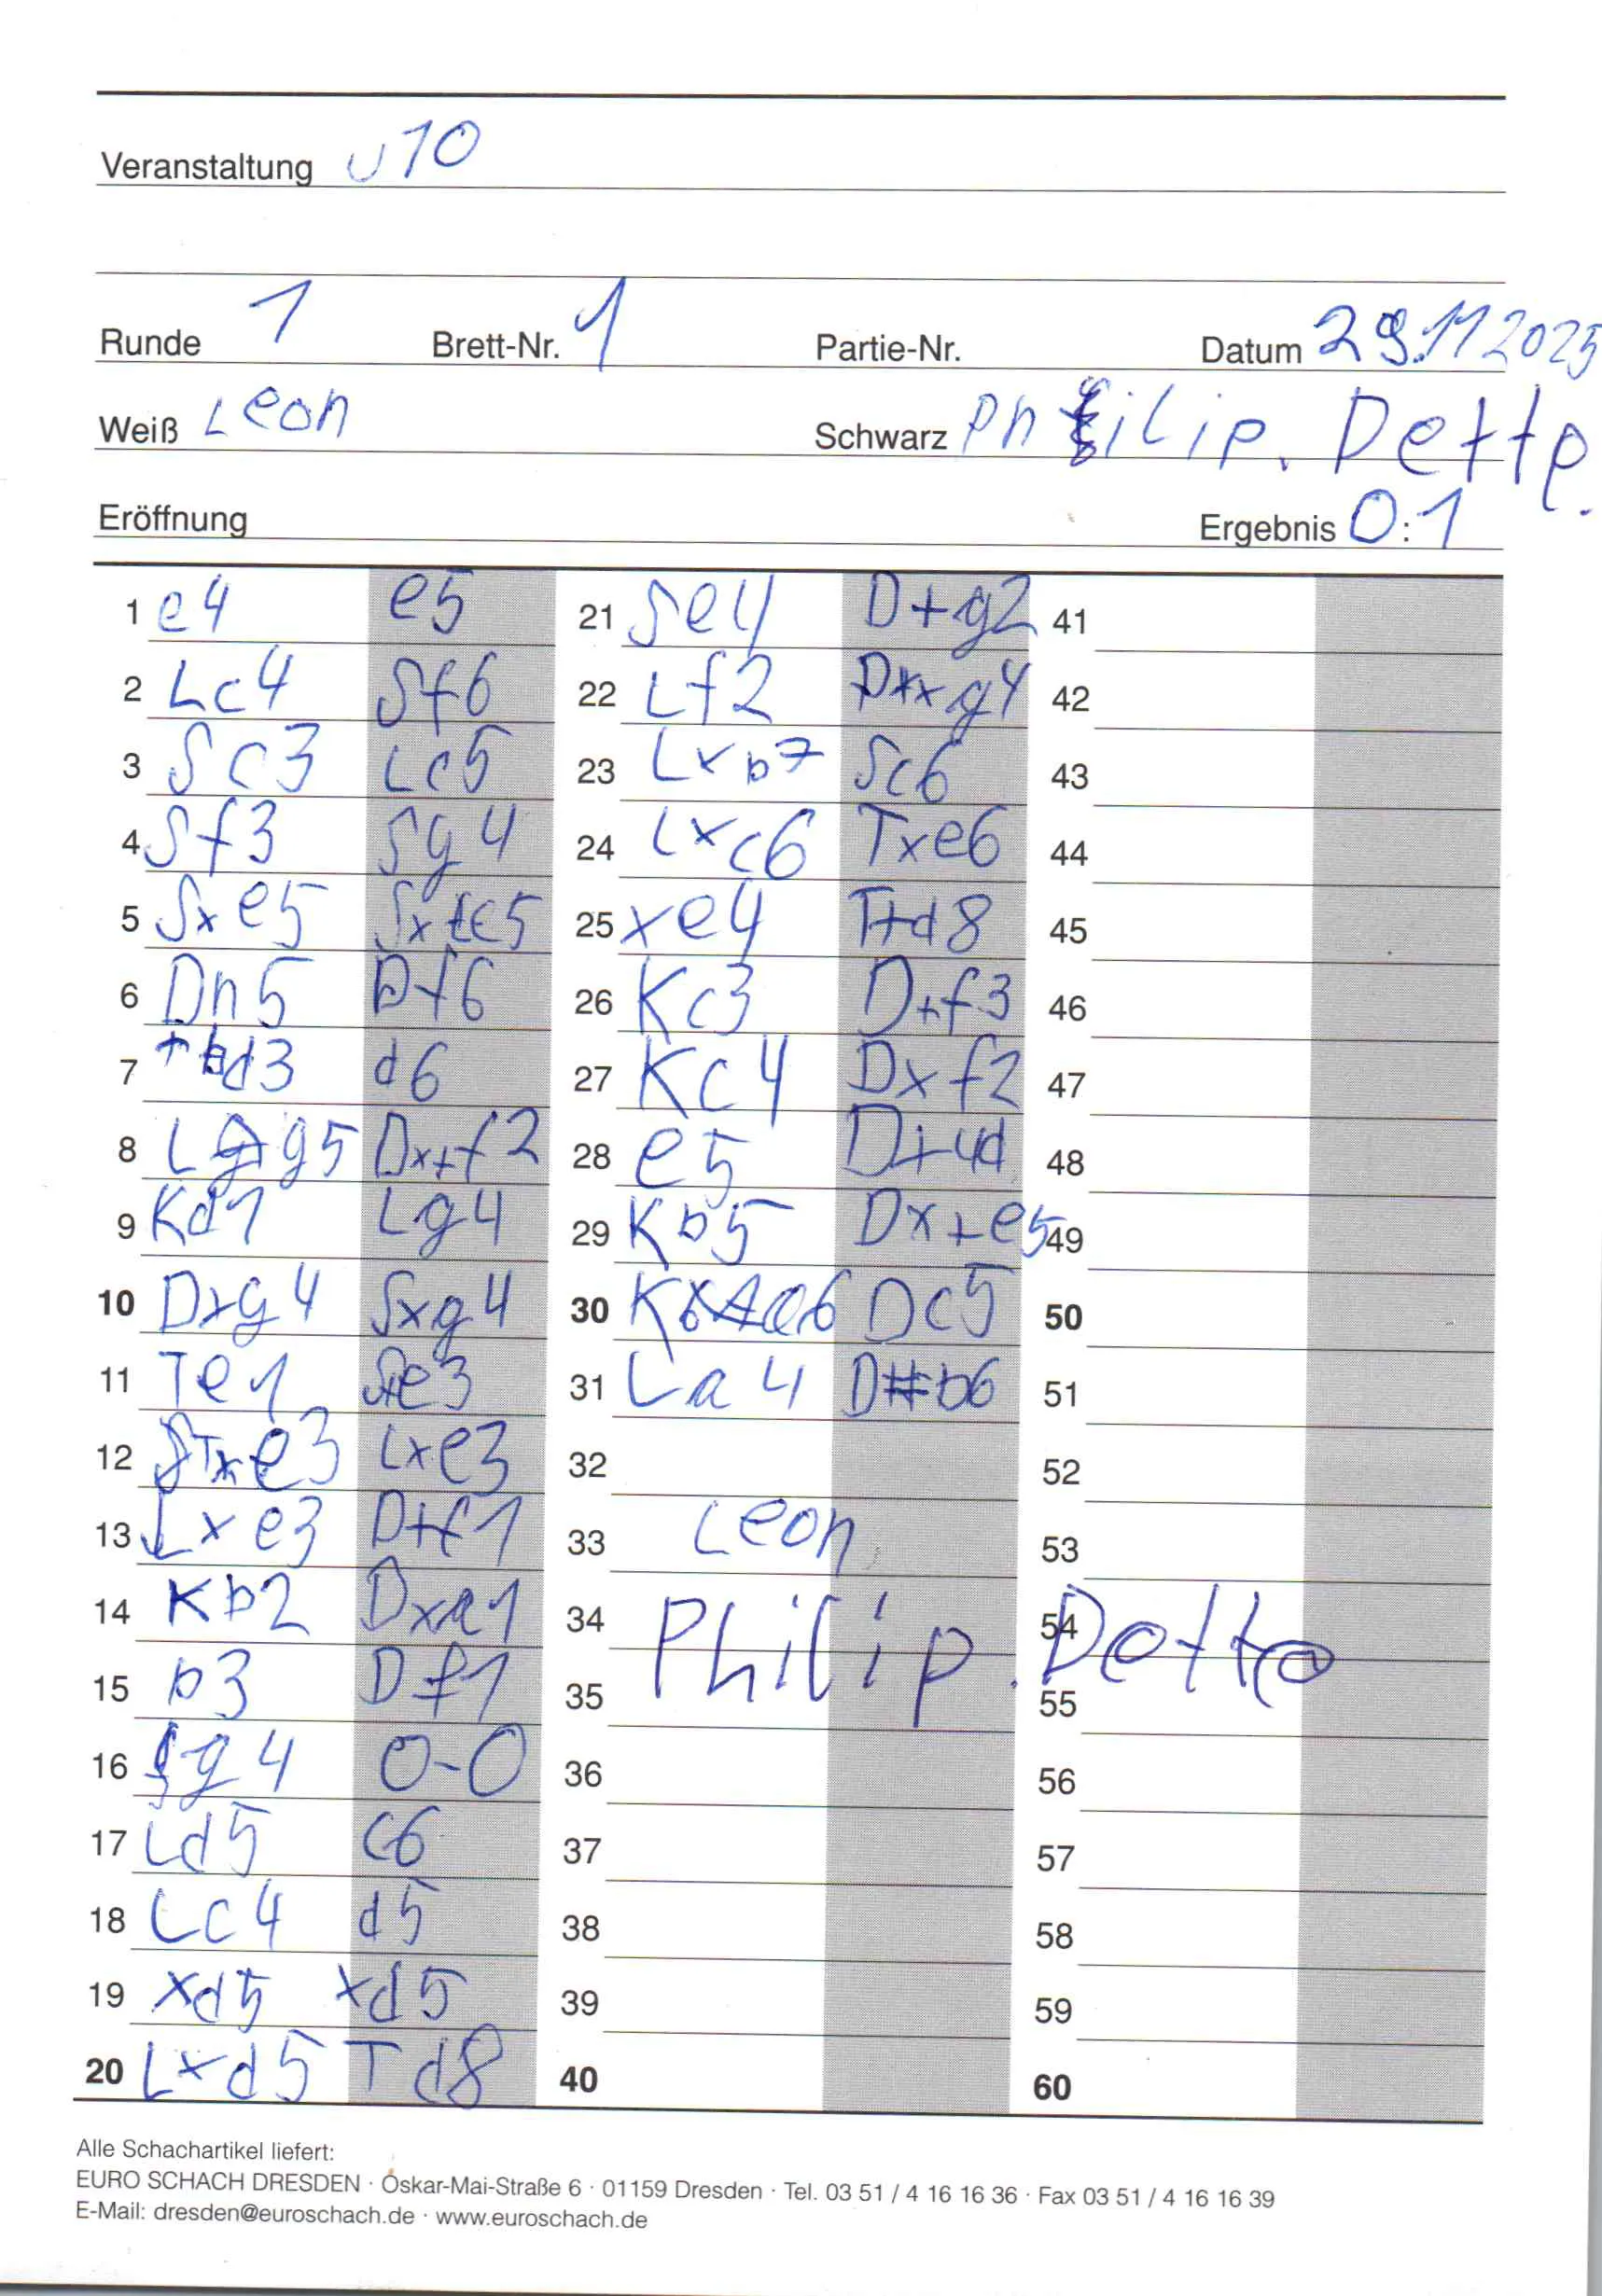 Veranstaltung U10
Runde 1 Brett-Nr. 1 Partie-Nr. Datum 29.11 2025
Weiß Leon Schwarz Philip. Dette.
Eröffnung Ergebnis 0:1
1 e4 e5 21 Se4 D+g2 41
2 Lc4 Sf6 22 Lf2 Dxxg4 42
3 Sc3 Lc5 23 Lxb7 Sc6 43
4 Sf3 Sg4 24 Lxc6 Txe6 44
5 Sxe5 Sxe5 25 xe4 T+d8 45
6 Dh5 Df6 26 Kc3 D+f3 46
7 d3 d6 27 Kc4 Dxf2 47
8 Lg5 Dx+f2 28 e5 D+4d 48
9 Kd1 Lg4 29 Kb5 Dx+e5 49
10 Dxg4 Sxg4 30 Ka6 Dc5 50
11 Te1 S+e3 31 La4 D#b6 51
12 Txe3 Lxe3 32 52
13 Lxe3 D+f1 33 Leon 53
14 Kb2 Dxa1 34 Philip. Dette 54
15 b3 Df1 35 55
16 g4 0-0 36 56
17 Ld5 c6 37 57
18 Lc4 d5 38 58
19 xd5 xd5 39 59
20 Lxd5 Td8 40 60
Alle Schachartikel liefert:
EURO SCHACH DRESDEN · Oskar-Mai-Straße 6 · 01159 Dresden · Tel. 03 51 / 4 16 16 36 · Fax 03 51 / 4 16 16 39
E-Mail: dresden@euroschach.de · www.euroschach.de